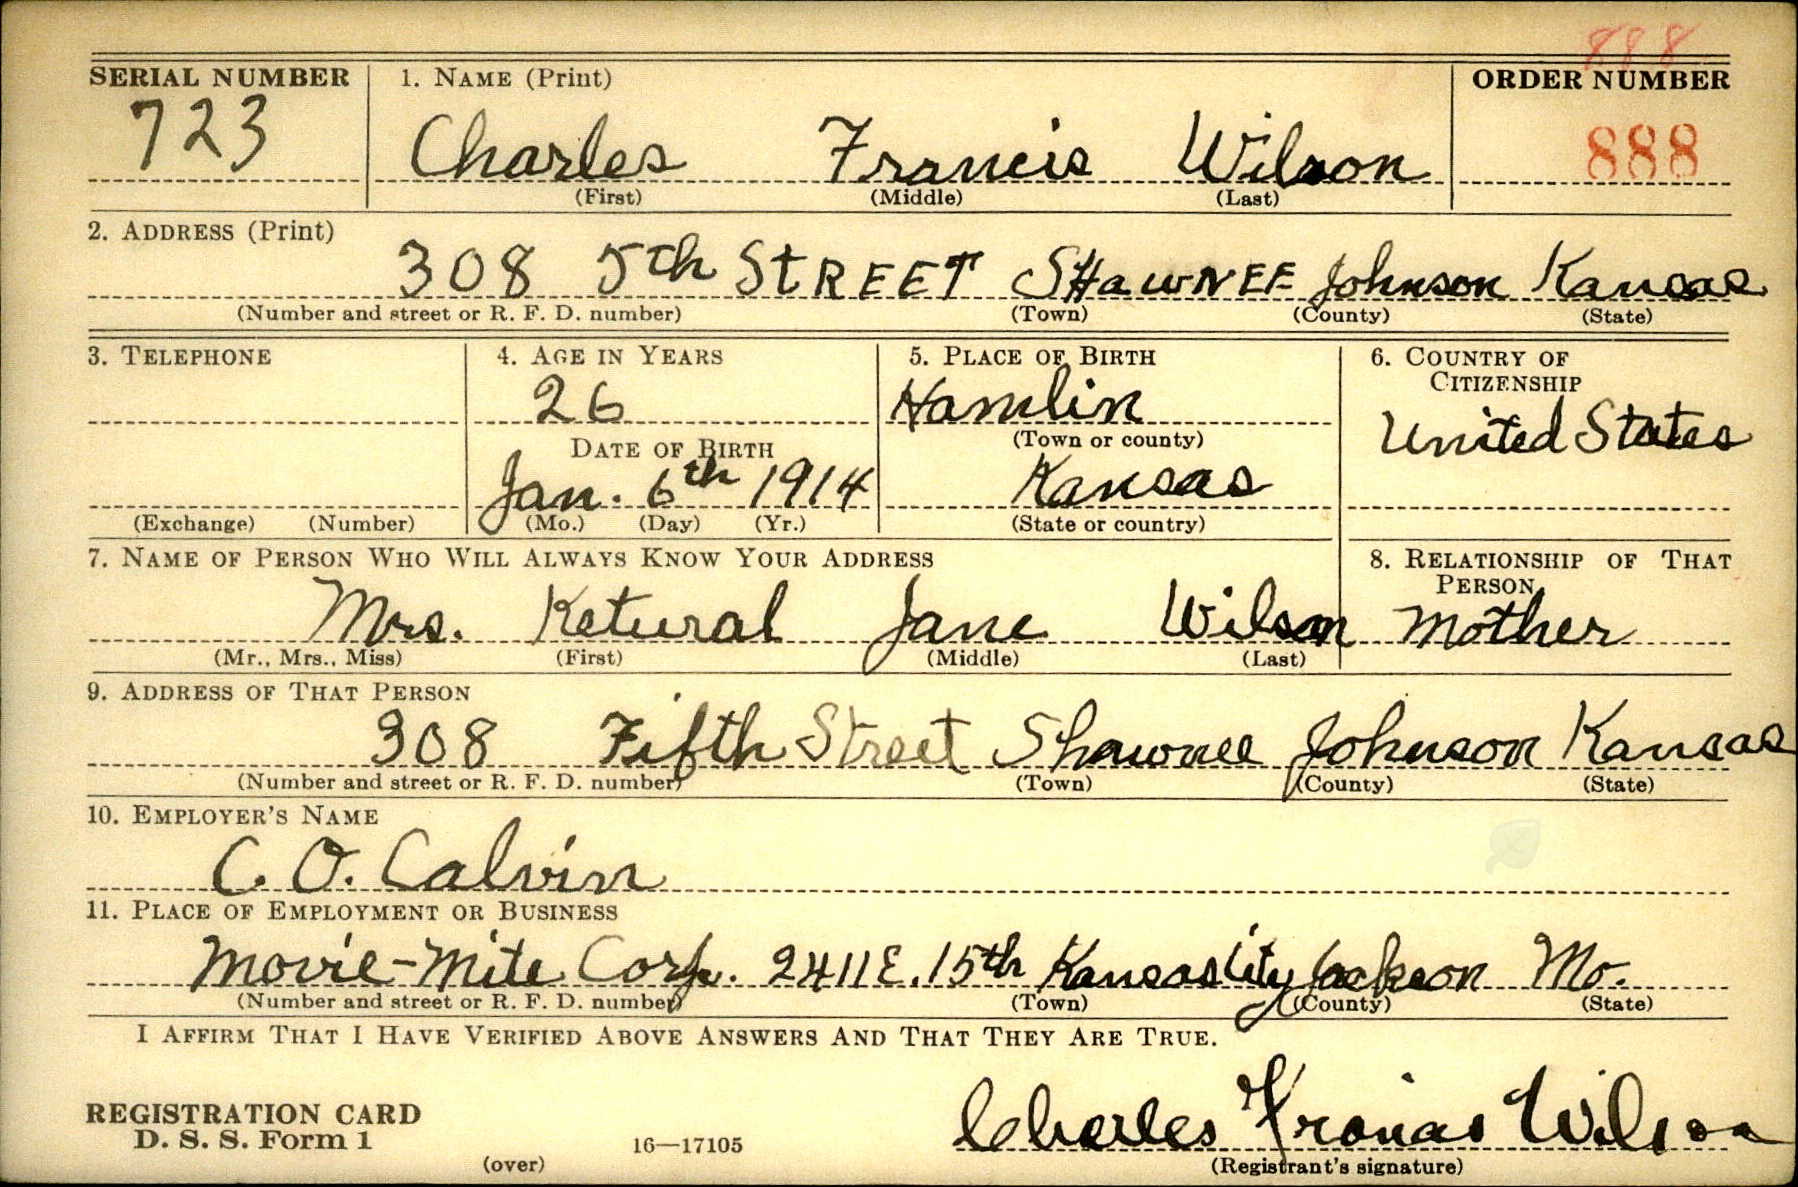 888
SERIAL NUMBER 1. NAME (Print) ORDER NUMBER
723 Charles Francis Wilson 888
(First) (Middle) (Last)
2. ADDRESS (Print)
308 5th STREET SHawNEE Johnson Kansas
(Number and street or R. F. D. number) (Town) (County) (State)
3. TELEPHONE 4. AGE IN YEARS 5. PLACE OF BIRTH 6. COUNTRY OF CITIZENSHIP
26 Hamlin United States
DATE OF BIRTH (Town or county)
Jan. 6th 1914 Kansas
(Exchange) (Number) (Mo.) (Day) (Yr.) (State or country)
7. NAME OF PERSON WHO WILL ALWAYS KNOW YOUR ADDRESS 8. RELATIONSHIP OF THAT PERSON
Mrs. Ketural Jane Wilson Mother
(Mr., Mrs., Miss) (First) (Middle) (Last)
9. ADDRESS OF THAT PERSON
308 Fifth Street Shawnee Johnson Kansas
(Number and street or R. F. D. number) (Town) (County) (State)
10. EMPLOYER'S NAME
C. O. Calvin
11. PLACE OF EMPLOYMENT OR BUSINESS
Movie-Mite Corp. 2411 E. 15th Kansas City Jackson Mo.
(Number and street or R. F. D. number) (Town) (County) (State)
I AFFIRM THAT I HAVE VERIFIED ABOVE ANSWERS AND THAT THEY ARE TRUE.
REGISTRATION CARD
D. S. S. Form 1 16—17105 Charles Francis Wilson
(over) (Registrant's signature)